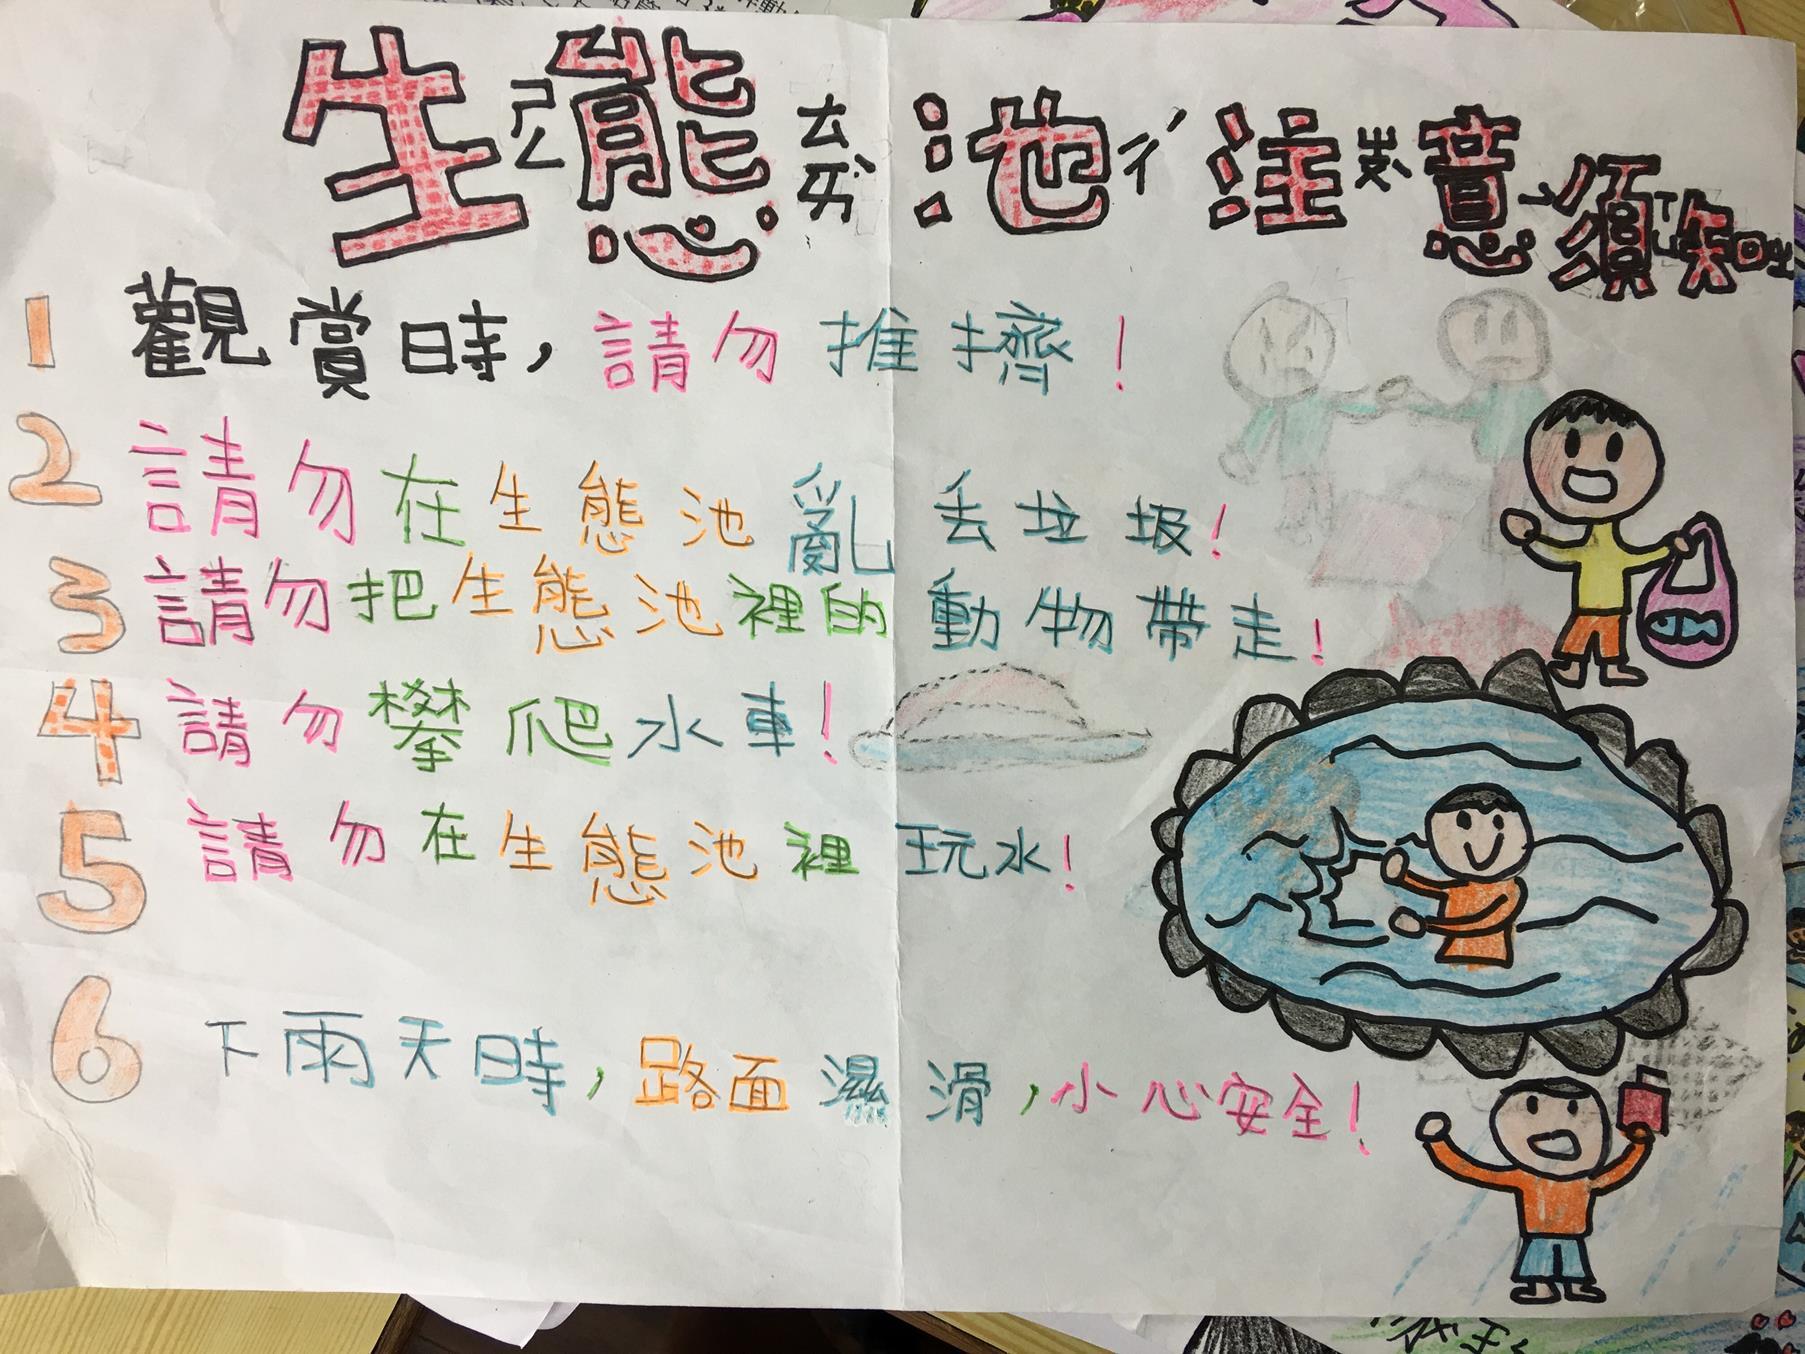 生態池注意須知
1 觀賞時，請勿推擠！
2 請勿在生態池亂丟垃圾！
3 請勿把生態池裡的動物帶走！
4 請勿攀爬水車！
5 請勿在生態池裡玩水！
6 下雨天時，路面濕滑，小心安全！